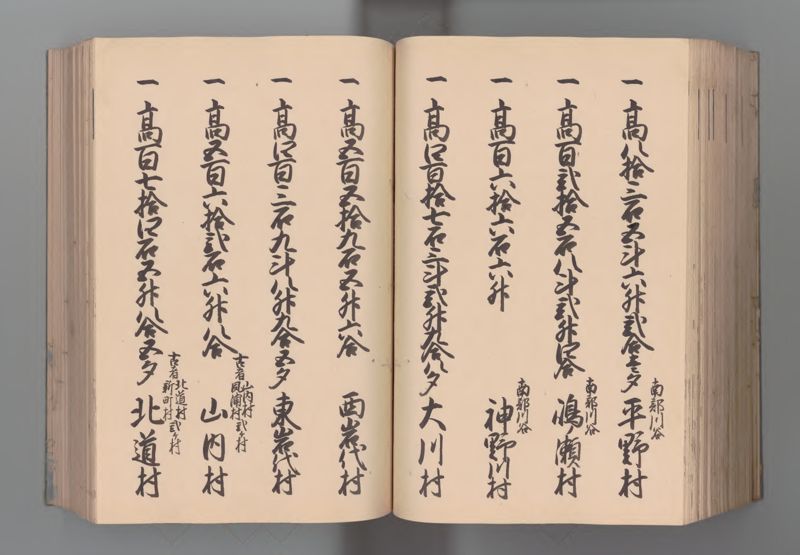 一 高八拾三石五斗六升弐合壱夕 南部川谷 平野村
一 高百弐拾五石八斗弐升四合 南部川谷 嶋瀬村
一 高百六拾六石六升 南部川谷 神野川村
一 高四百拾七石三斗弐升九合八夕 大川村
一 高五百五拾九石五升六合 西岩代村
一 高四百三石九斗八升九合五夕 東岩代村
一 高五百六拾弐石六升八合 古者山内村風浦村弐ヶ村 山内村
一 高百七拾四石五升八合五夕 古者北道村新町村弐ヶ村 北道村